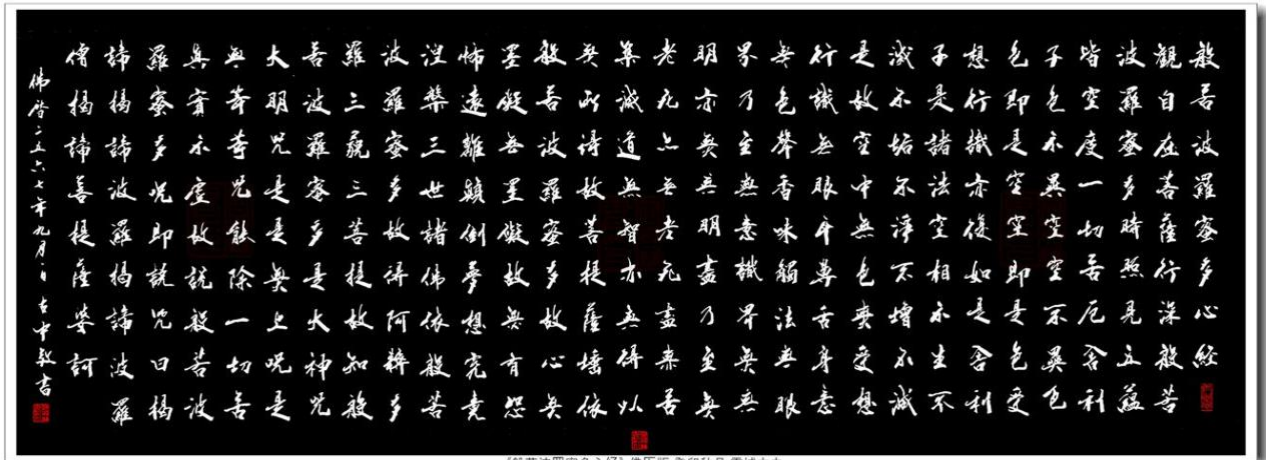 般若波羅蜜多心經
觀自在菩薩行深般若
波羅蜜多時照見五蘊
皆空度一切苦厄舍利
子色不異空空不異色
色即是空空即是色受
想行識亦復如是舍利
子是諸法空相不生不
滅不垢不淨不增不減
是故空中無色無受想
行識無眼耳鼻舌身意
無色聲香味觸法無眼
界乃至無意識界無無
明亦無無明盡乃至無
老死亦無老死盡無苦
集滅道無智亦無得以
無所得故菩提薩埵依
般若波羅蜜多故心無
罣礙無罣礙故無有恐
怖遠離顛倒夢想究竟
涅槃三世諸佛依般若
波羅蜜多故得阿耨多
羅三藐三菩提故知般
若波羅蜜多是大神咒
大明咒是是無上咒是
無等等咒能除一切苦
真實不虛故說般若波
羅蜜多咒即說咒曰揭
諦揭諦波羅揭諦波羅
僧揭諦菩提薩婆訶
佛二五六七年九月日古中敬書